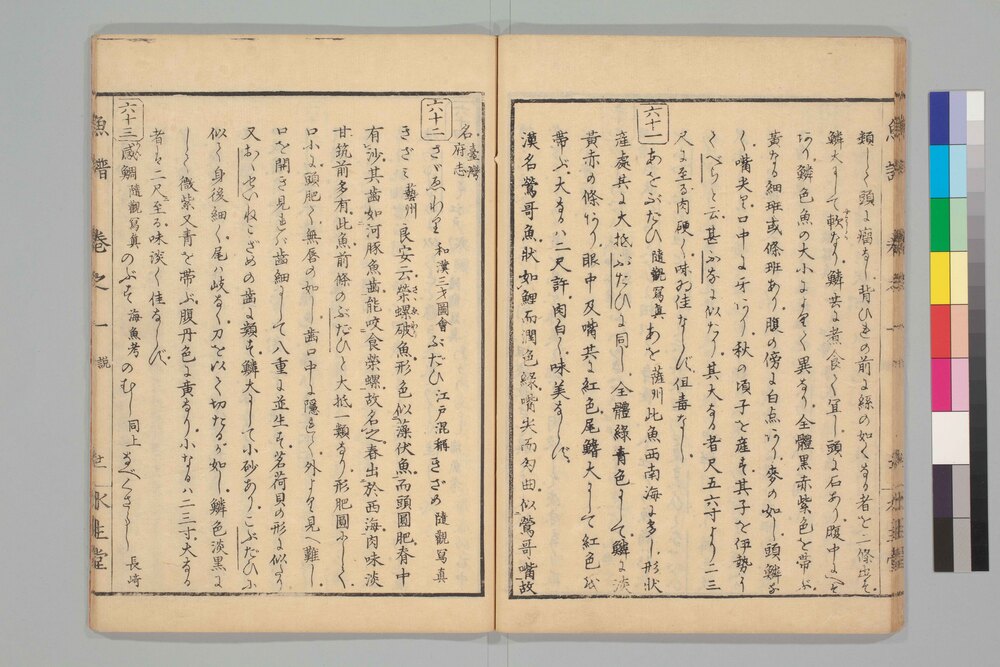 類し頭に瘤なし背ひれの前に絲の如くなる者を二條出す
鱗大にして軟なり鱗共に煮食して宜し頭に石あり腹中に
あり鱗色魚の大小により異なり全體黒赤紫色を帯ぶ
黄なる細斑或條斑あり腹の傍に白点あり麥の如し頭
く嘴尖り口中に牙あり秋の頃子を産す其子を伊勢
くべらと云甚ふなに似たり其大なる者尺五六寸より二三
尺に至る肉硬く味佳ならず但毒なし
六十一 あをぶだひ 隨觀寫真 あを 薩州 此魚西南海に多し形状
産處共に大抵ぶだひに同し全體綠青色にして鱗に淡
黄赤の條あり眼中及嘴共に紅色尾鰭大にして紅色を
帯ぶ大なるハ二尺許肉白し味美ならず
漢名鶯哥魚狀如鯉而潤色綠嘴尖而勾曲似鶯哥嘴故
名 臺灣府志
六十二 さゞゑわり 和漢三才圖會 ぶだひ 江戸混稱 きざめ 隨觀寫真
きざミ 藝州 良安云榮螺破魚形色似藻伏魚而頭圓肥脊中
有沙其齒如河豚魚齒能咬食榮螺故名之春出於西海肉味淡
甘筑前多有此魚前條のぶだひと大抵一類なり形肥圓にして
口小に頭肥て無唇の如し齒口中に隱れて外より見へ難し
口を開き見れバ齒細にして八重に並生す茗荷貝の形に似たり
又おくせいねこざめの齒に類す鱗大にして小砂ありこぶだひに
似て身後細く尾ハ岐なく刀を以て切たるが如し鱗色淡黒に
して微紫又青を帯ぶ腹丹色に黄なり小なるハ二三寸大なる
者ハ二尺至る味淡く佳ならず
六十三 感鯛 隨觀寫真 のぶす 海魚考 のむし 同上 なべくさらし 長崎
魚譜 卷之一 説 水産堂